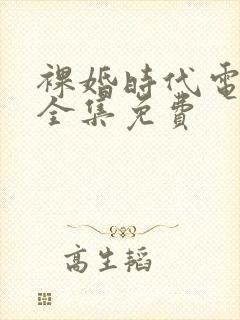 裸婚時代電
全集免費
高生韬